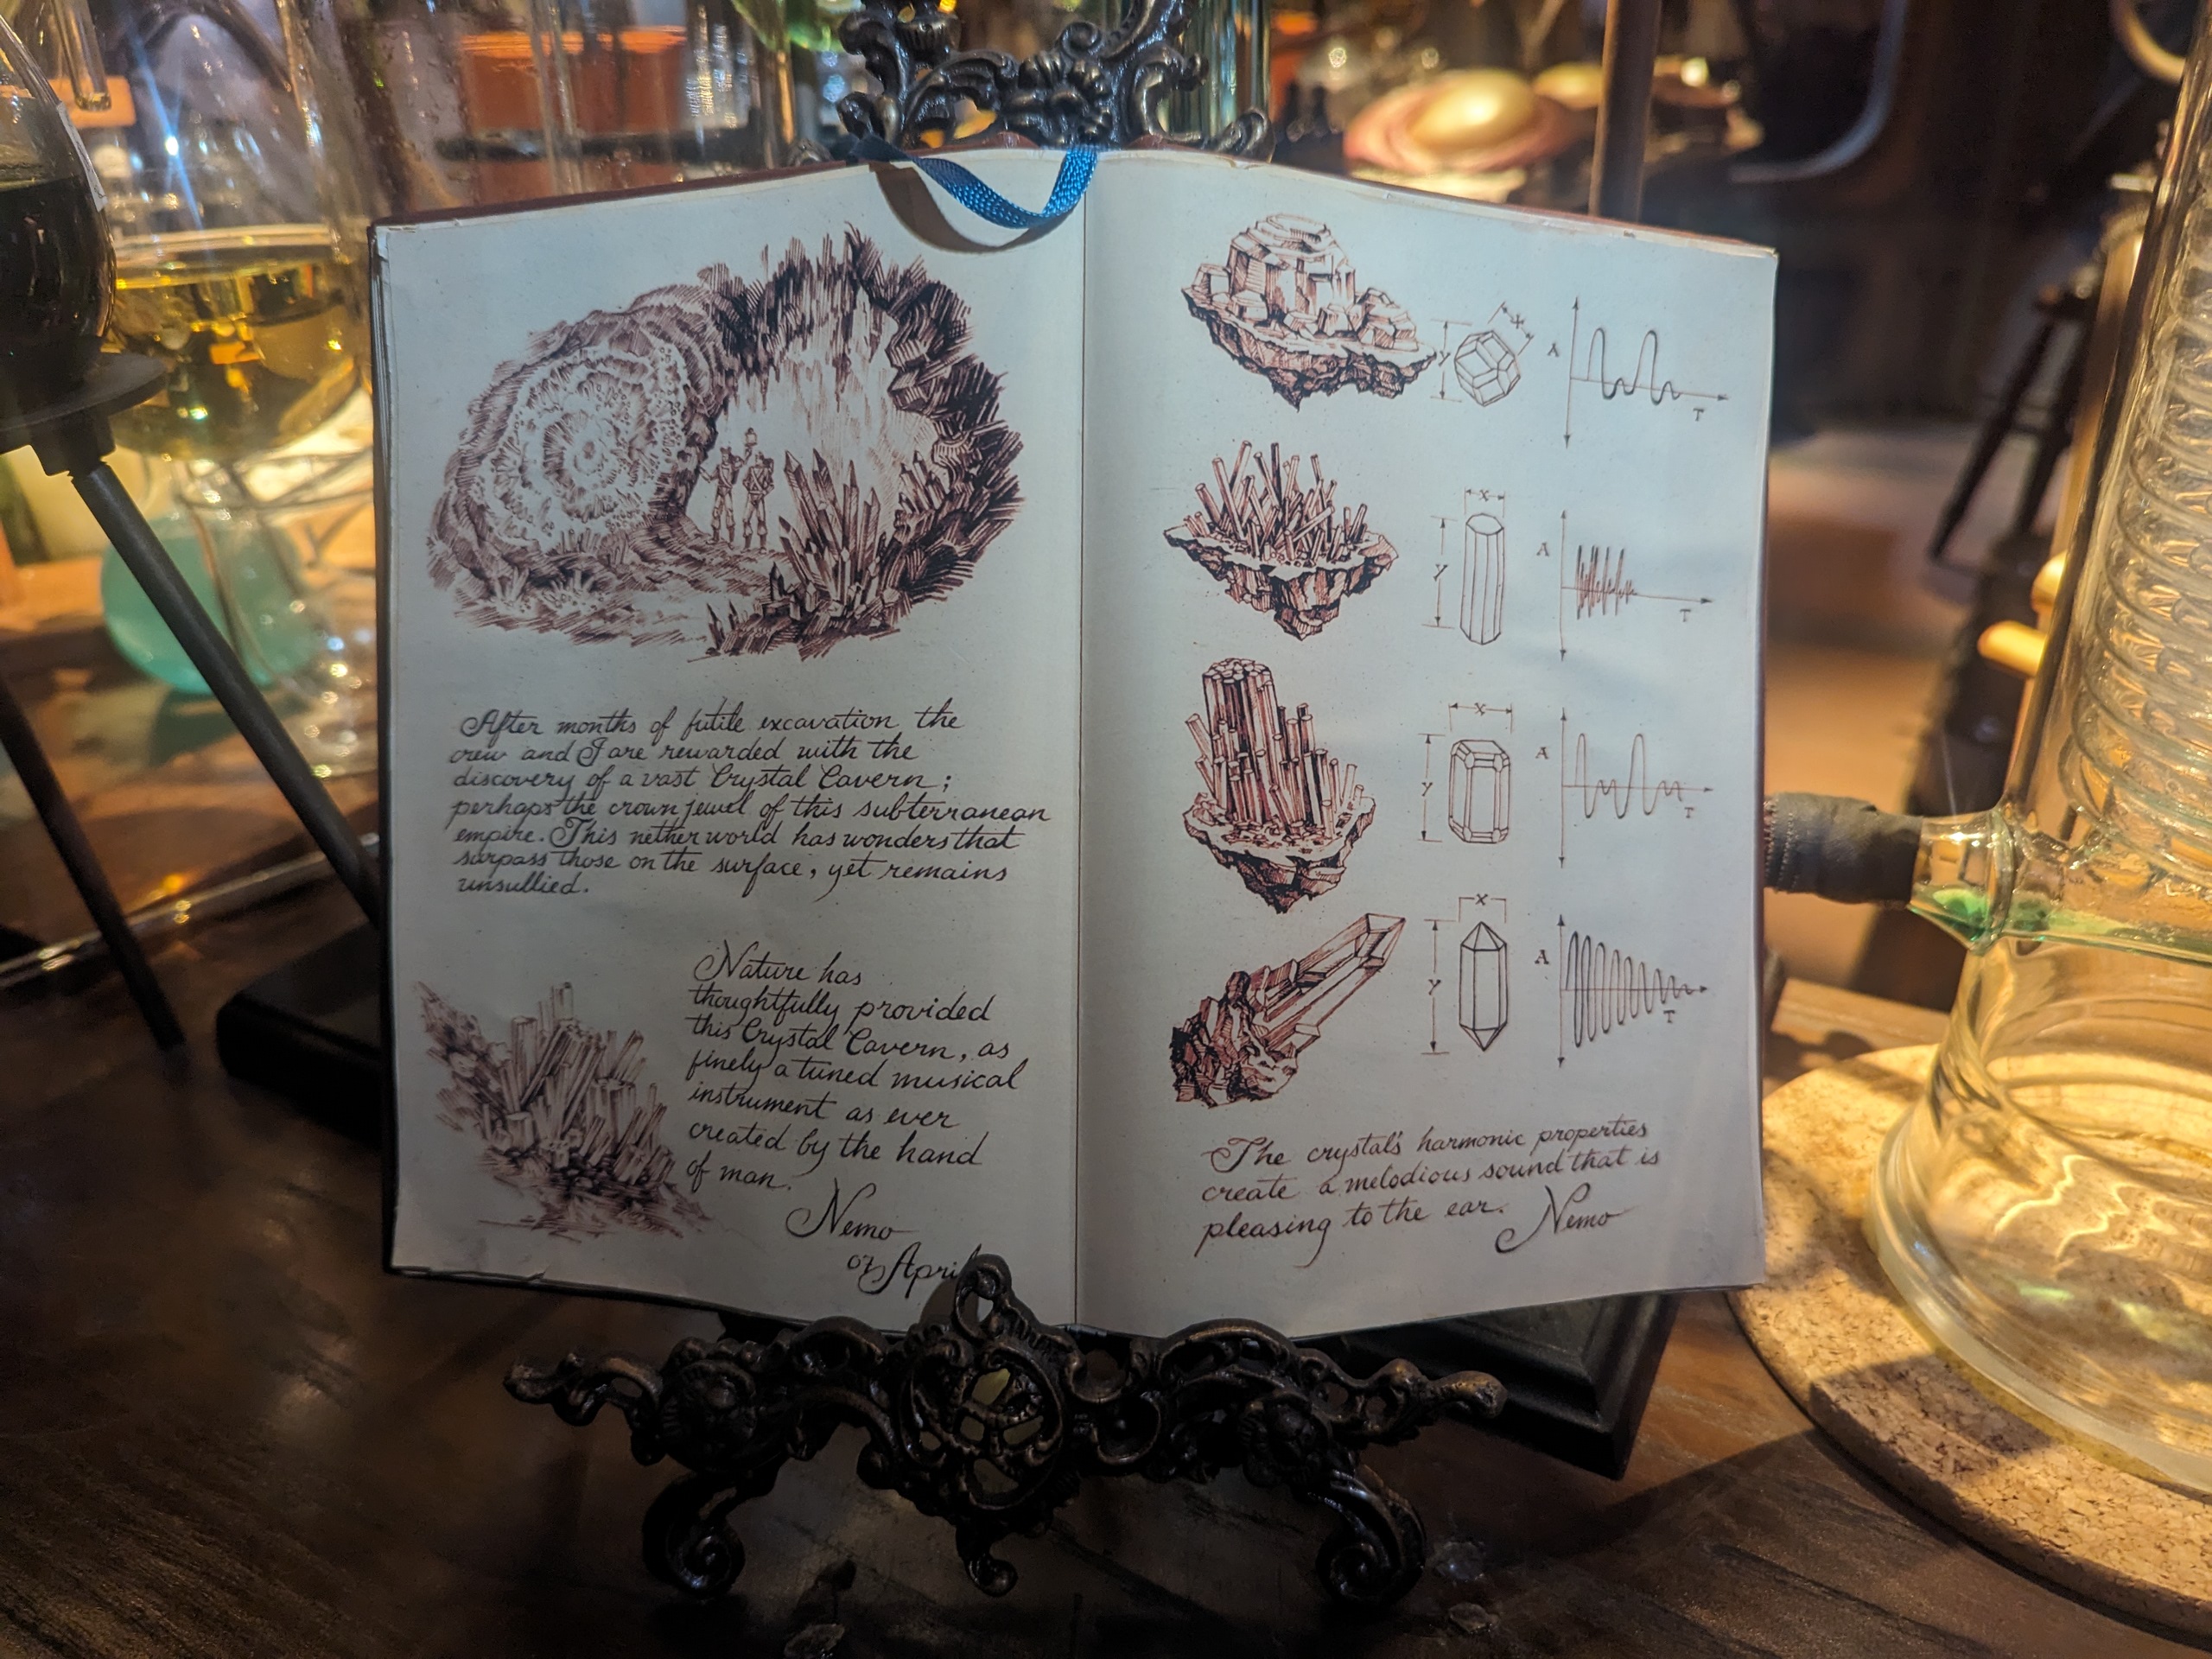 After months of futile excavation the
crew and I are rewarded with the
discovery of a vast Crystal Cavern;
perhaps the crown jewel of this subterranean
empire. This nether world has wonders that
surpass those on the surface, yet remains
unsullied.
Nature has
thoughtfully provided
this Crystal Cavern, as
finely a tuned musical
instrument as ever
created by the hand
of man.
Nemo
07 April
X
Y
A
T
X
Y
A
T
X
Y
A
T
X
Y
A
T
The crystal's harmonic properties
create a melodious sound that is
pleasing to the ear.
Nemo